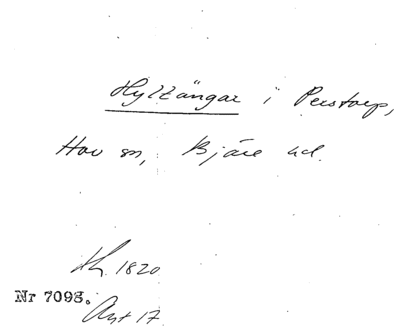 Hyltängar i Perstorp,
Hov sn, Bjäre hd.
Ah. 1820
Nr 7093.
Avt 17